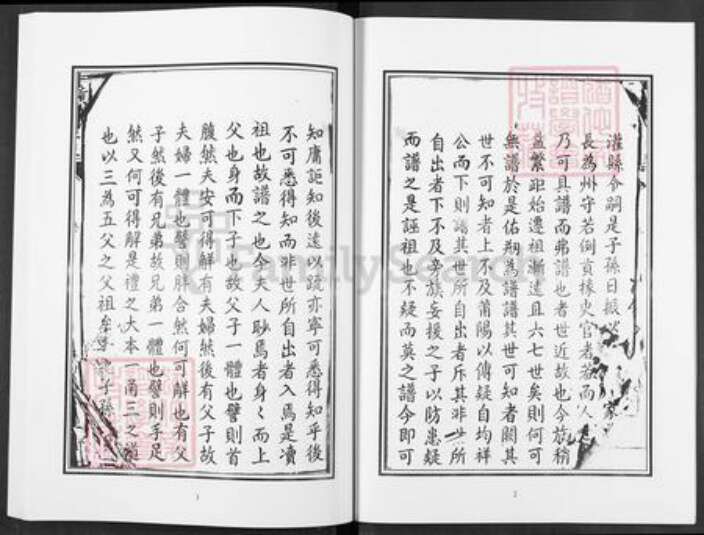 灌縣令嗣是子孫日振
長為州守若倒貢椽史官者若而人
乃可具譜而弗譜也者世近故也今族稍
益繁距始遷祖漸遠且六七世矣則何可
無譜於是佑翔為譜譜其世可知者闕其
世不可知者上不及莆陽以傳疑自均祥
公而下則譜其世所自出者斥其非世所
自出者下不及旁族妄援之子以昉患疑
而譜之是誣祖也不疑而莫之譜今即可
知庸詎知後遠以疏亦寧可悉得知乎後
不可悉得知而非世所自出者入焉是凟
祖也故譜之也今夫人眇焉者身〻而上
父也身而下子也故父子一體也譬則首
腹然夫安可得解有夫婦然後有父子故
夫婦一體也譬則胖合然何可解也有父
子然後有兄弟故兄弟一體也譬則手足
然又何可得解是禮之大本一甬三之道
也以三為五父之父祖牟子子孫
1
2
FamilySearch